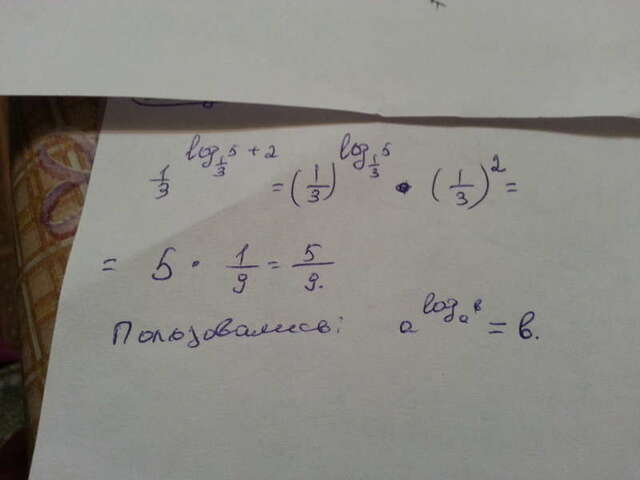 1/3^(log_{1/3} 5 + 2) = (1/3)^(log_{1/3} 5) · (1/3)^2 =
= 5 · 1/9 = 5/9.
Пользовались: a^(log_a в) = в.